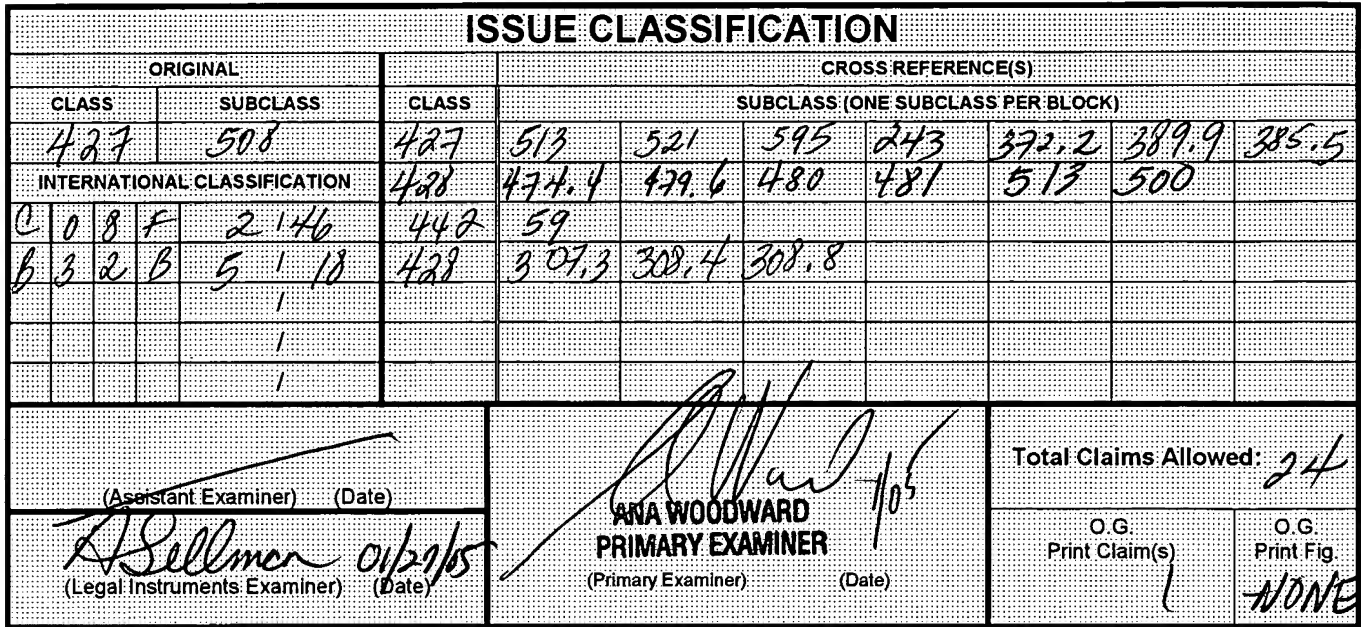 ISSUE CLASSIFICATION
ORIGINAL CROSS REFERENCE(S)
CLASS SUBCLASS CLASS SUBCLASS (ONE SUBCLASS PER BLOCK)
427 508 427 513 521 595 243 372.2 389.9 385.5
INTERNATIONAL CLASSIFICATION 428 474.4 479.6 480 481 513 500
C 0 8 F 2 / 46 442 59
B 3 2 B 5 / 18 428 307.3 308.4 308.8
/
/
/
Total Claims Allowed: 24
(Assistant Examiner) (Date)
ANA WOODWARD
PRIMARY EXAMINER
(Primary Examiner) (Date)
A Sellman
(Legal Instruments Examiner) (Date)
O.G. Print Claim(s) O.G. Print Fig.
1 NONE